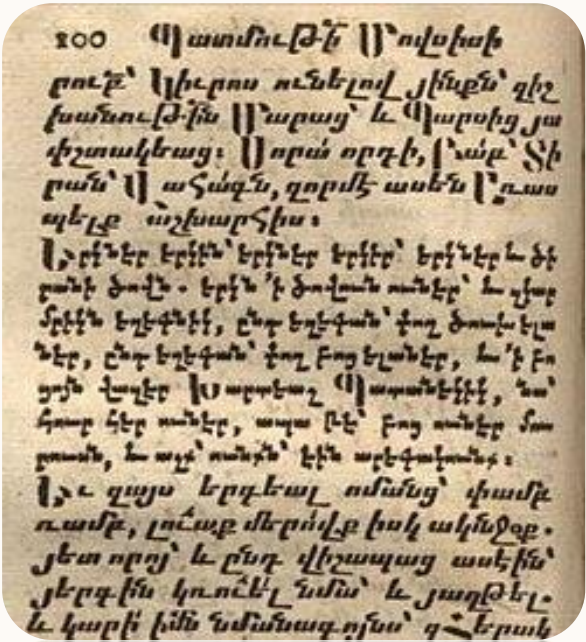 200 Պատմութի՛ Մովսիսի
րուք՝ Կիւրոս ունելով յինքն՝ զիշ
խանութիՆ Մարաց՝ և Պարսից յա
փշտակեաց։ Սորա որդի, Բաբ՝ Տի
րան՝ Վահագն, զորմէ ասեն Առաս
պելք աշխարհիս։
Երկնէր երկին՝ երկնէր երկիր՝ երկնէր և ծի
րանի ծովն. երկն ՚ի ծովուն ունէր՝ և զկար
մրիկն եղեգնիկ, ընդ եղեգան՝ փող ծուխ ելա
նէր, ընդ եղեգան՝ փող բոց ելանէր, և ՚ի բո
ցոյն վազէր Խարտեաշ Պատանեկիկ, նա՝
հուր հեր ունէր, ապա թէ՝ բոց ունէր մօ
րուս, և աչք՝ ունքն՝ էին արեգակունք։
Եւ զայս երգեալ ոմանց՝ փամբ
ռամբ, լուաք մերովք իսկ ականջօք.
յետ որոյ՝ և ընդ վիշապաց ասէին՝
յերգին կռուել նմա՝ և յաղթել.
և կարի իմն նմանագոյնս՝ զՀերակ